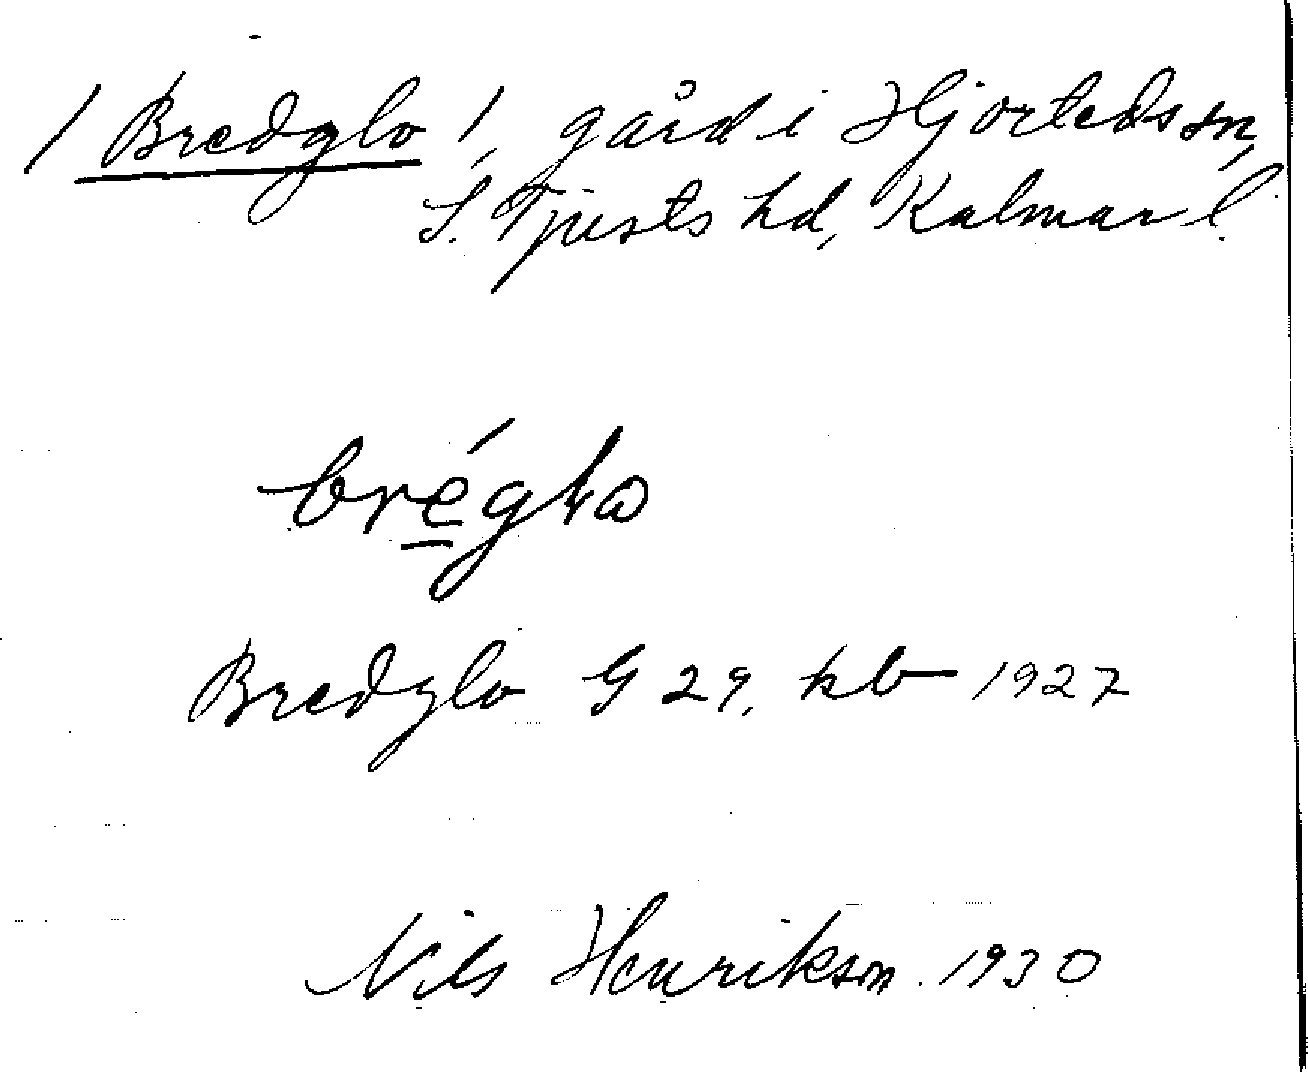 / Bredglo /, gård i Hjorteds sn,
S. Tjusts hd, Kalmar l.
brégło
Bredglo G 29, kb 1927
Nils Henrikson. 1930